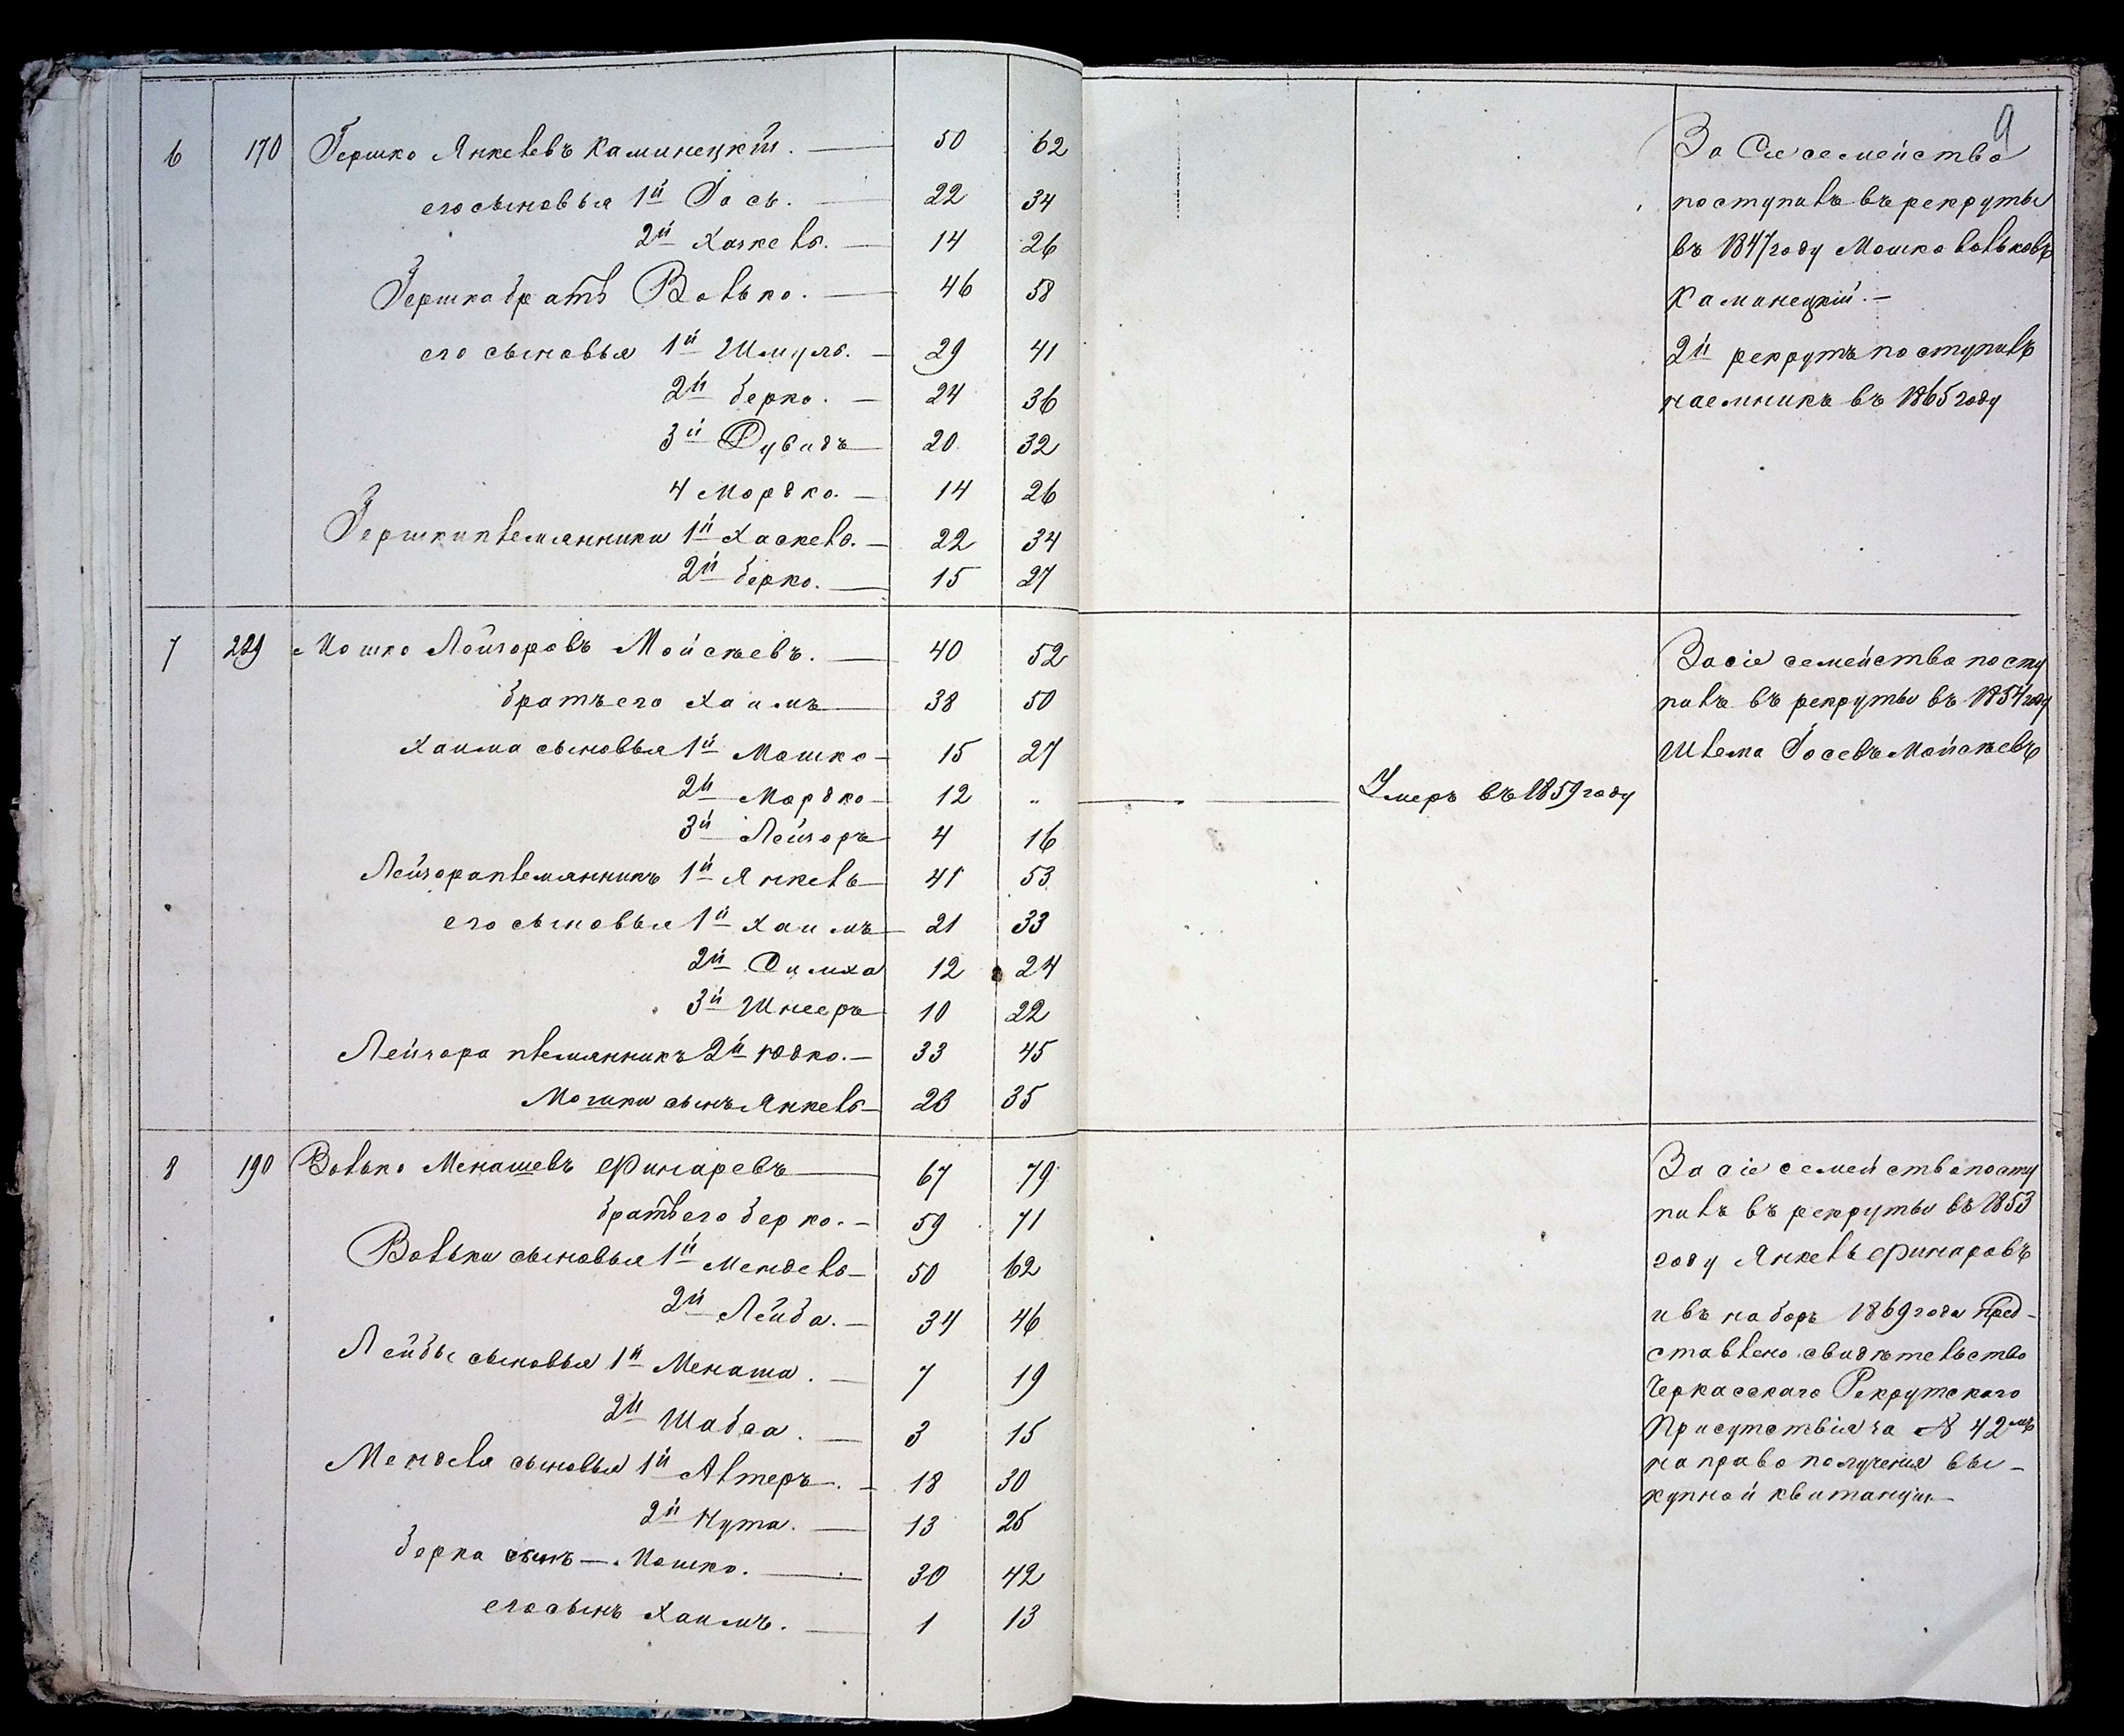 9
6 170 Гершко Янкелевъ Каминецкій. — 50 62
его сыновья 1й Іось. — 22 34
2й Хаскель. — 14 26
Гершка братъ Волько. — 46 58
его сыновья 1й Шмуль. — 29 41
2й Берко. — 24 36
3й Рувинъ — 20 32
4 Мордко. — 14 26
Гершки племянники 1й Хаскель. — 22 34
2й Берко. — 15 27
За Сіе семейство
поступилъ въ рекруты
въ 1847 году Мошко Вольковъ
Каминецкій. —
2й рекрутъ поступилъ
наемникъ въ 1865 году
7 229 Мошко Лейзоровъ Мойсѣевъ. — 40 52
братъ его Хаимъ — 38 50
Хаима сыновья 1й Мошко — 15 27
2й Мордко — 12 „ — Умеръ въ 1859 году
3й Лейзоръ — 4 16
Лейзора племянникъ 1й Янкель — 41 53
его сыновья 1й Хаимъ — 21 33
2й Симха 12 24
3й Шнееръ — 10 22
Лейзора племянникъ 2й Юдко. — 33 45
Мошки сынъ Янкель — 23 35
За сіе семейство посту
пилъ въ рекруты въ 1854 году
Шлема Іосевъ Мойсѣевъ
8 190 Волько Менашевъ Финаревъ — 67 79
братъ его Берко. — 59 71
Вольки сыновья 1й Мендель — 50 62
2й Лейба. — 34 46
Лейбы сыновья 1й Менаша. — 7 19
2й Шабса. — 3 15
Менделя сыновья 1й Алтеръ. — 18 30
2й Нута. — 13 25
Берка сынъ — Мошко. — 30 42
его сынъ Хаимъ. — 1 13
За сіе семейство посту
пилъ въ рекруты въ 1853
году Янкель Финаровъ
и въ наборъ 1869 года пред-
ставлено свидѣтельство
Черкасскаго Рекрутскаго
Присутствія за № 42мъ
на право полученія вы-
купной квитанціи —